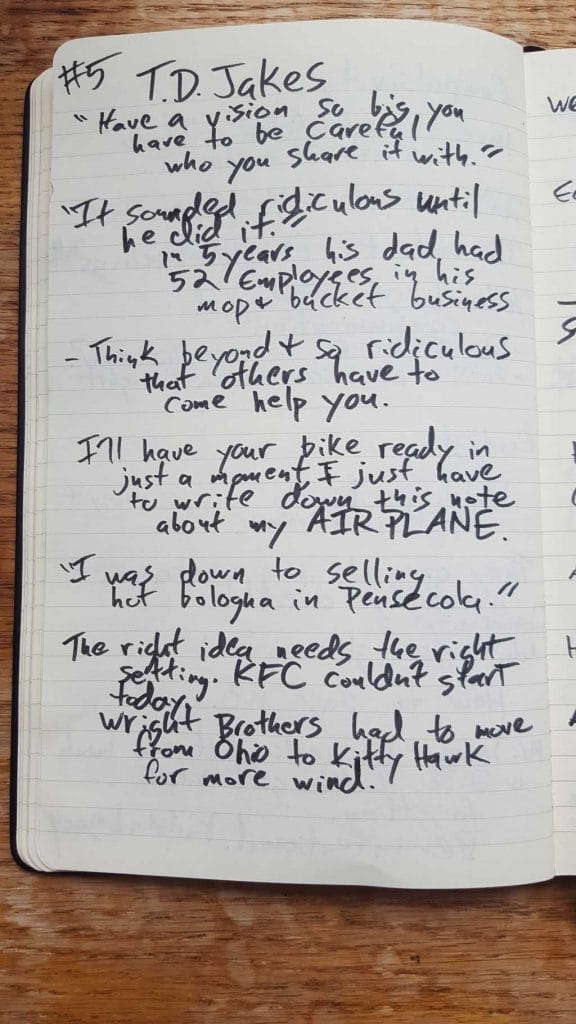 #5 T.D. Jakes
"Have a vision so big, you
have to be careful
who you share it with."
"It sounded ridiculous until
he did it."
in 5 years his dad had
52 Employees in his
mop + bucket business
- Think beyond + so ridiculous
that others have to
come help you.
I'll have your bike ready in
just a moment I just have
to write down this note
about my AIRPLANE.
"I was down to selling
hot bologna in Pensecola."
The right idea needs the right
setting. KFC couldn't start
today.
Wright Brothers had to move
from Ohio to Kitty Hawk
for more wind.